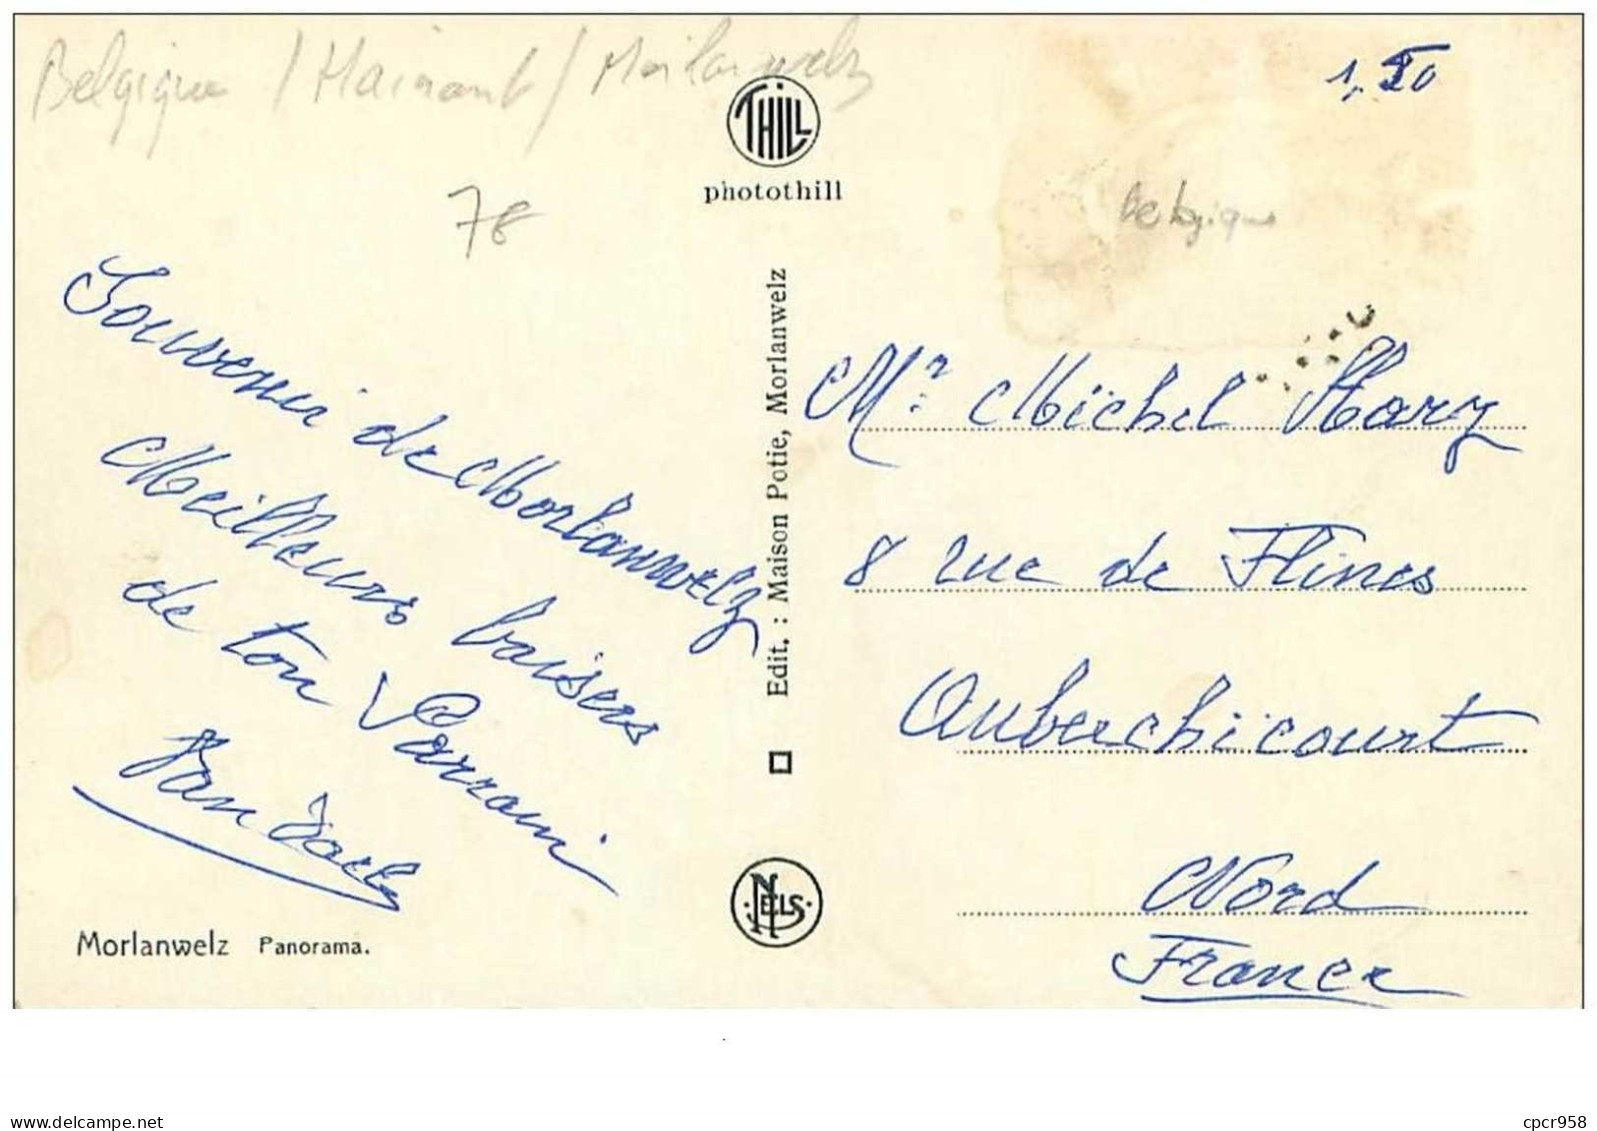 Belgique / Hainaut / Morlanwelz
1,20
THILL
photothill
Belgique
78
Souvenir de Morlanwelz
Meilleurs baisers
de ton Parrain
Morlanwelz Panorama.
Edit. : Maison Potie, Morlanwelz
NELS
Mr Michel
8 rue de Flines
Auberchicourt
Nord
France
delcampe.net
cpcr958